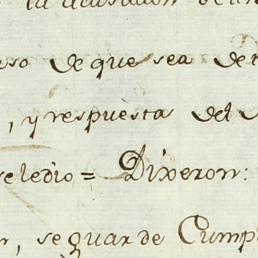 la acusacion
so de que sea de
, y respuesta del
se le dio = Dixeron:
, se guarde Cump